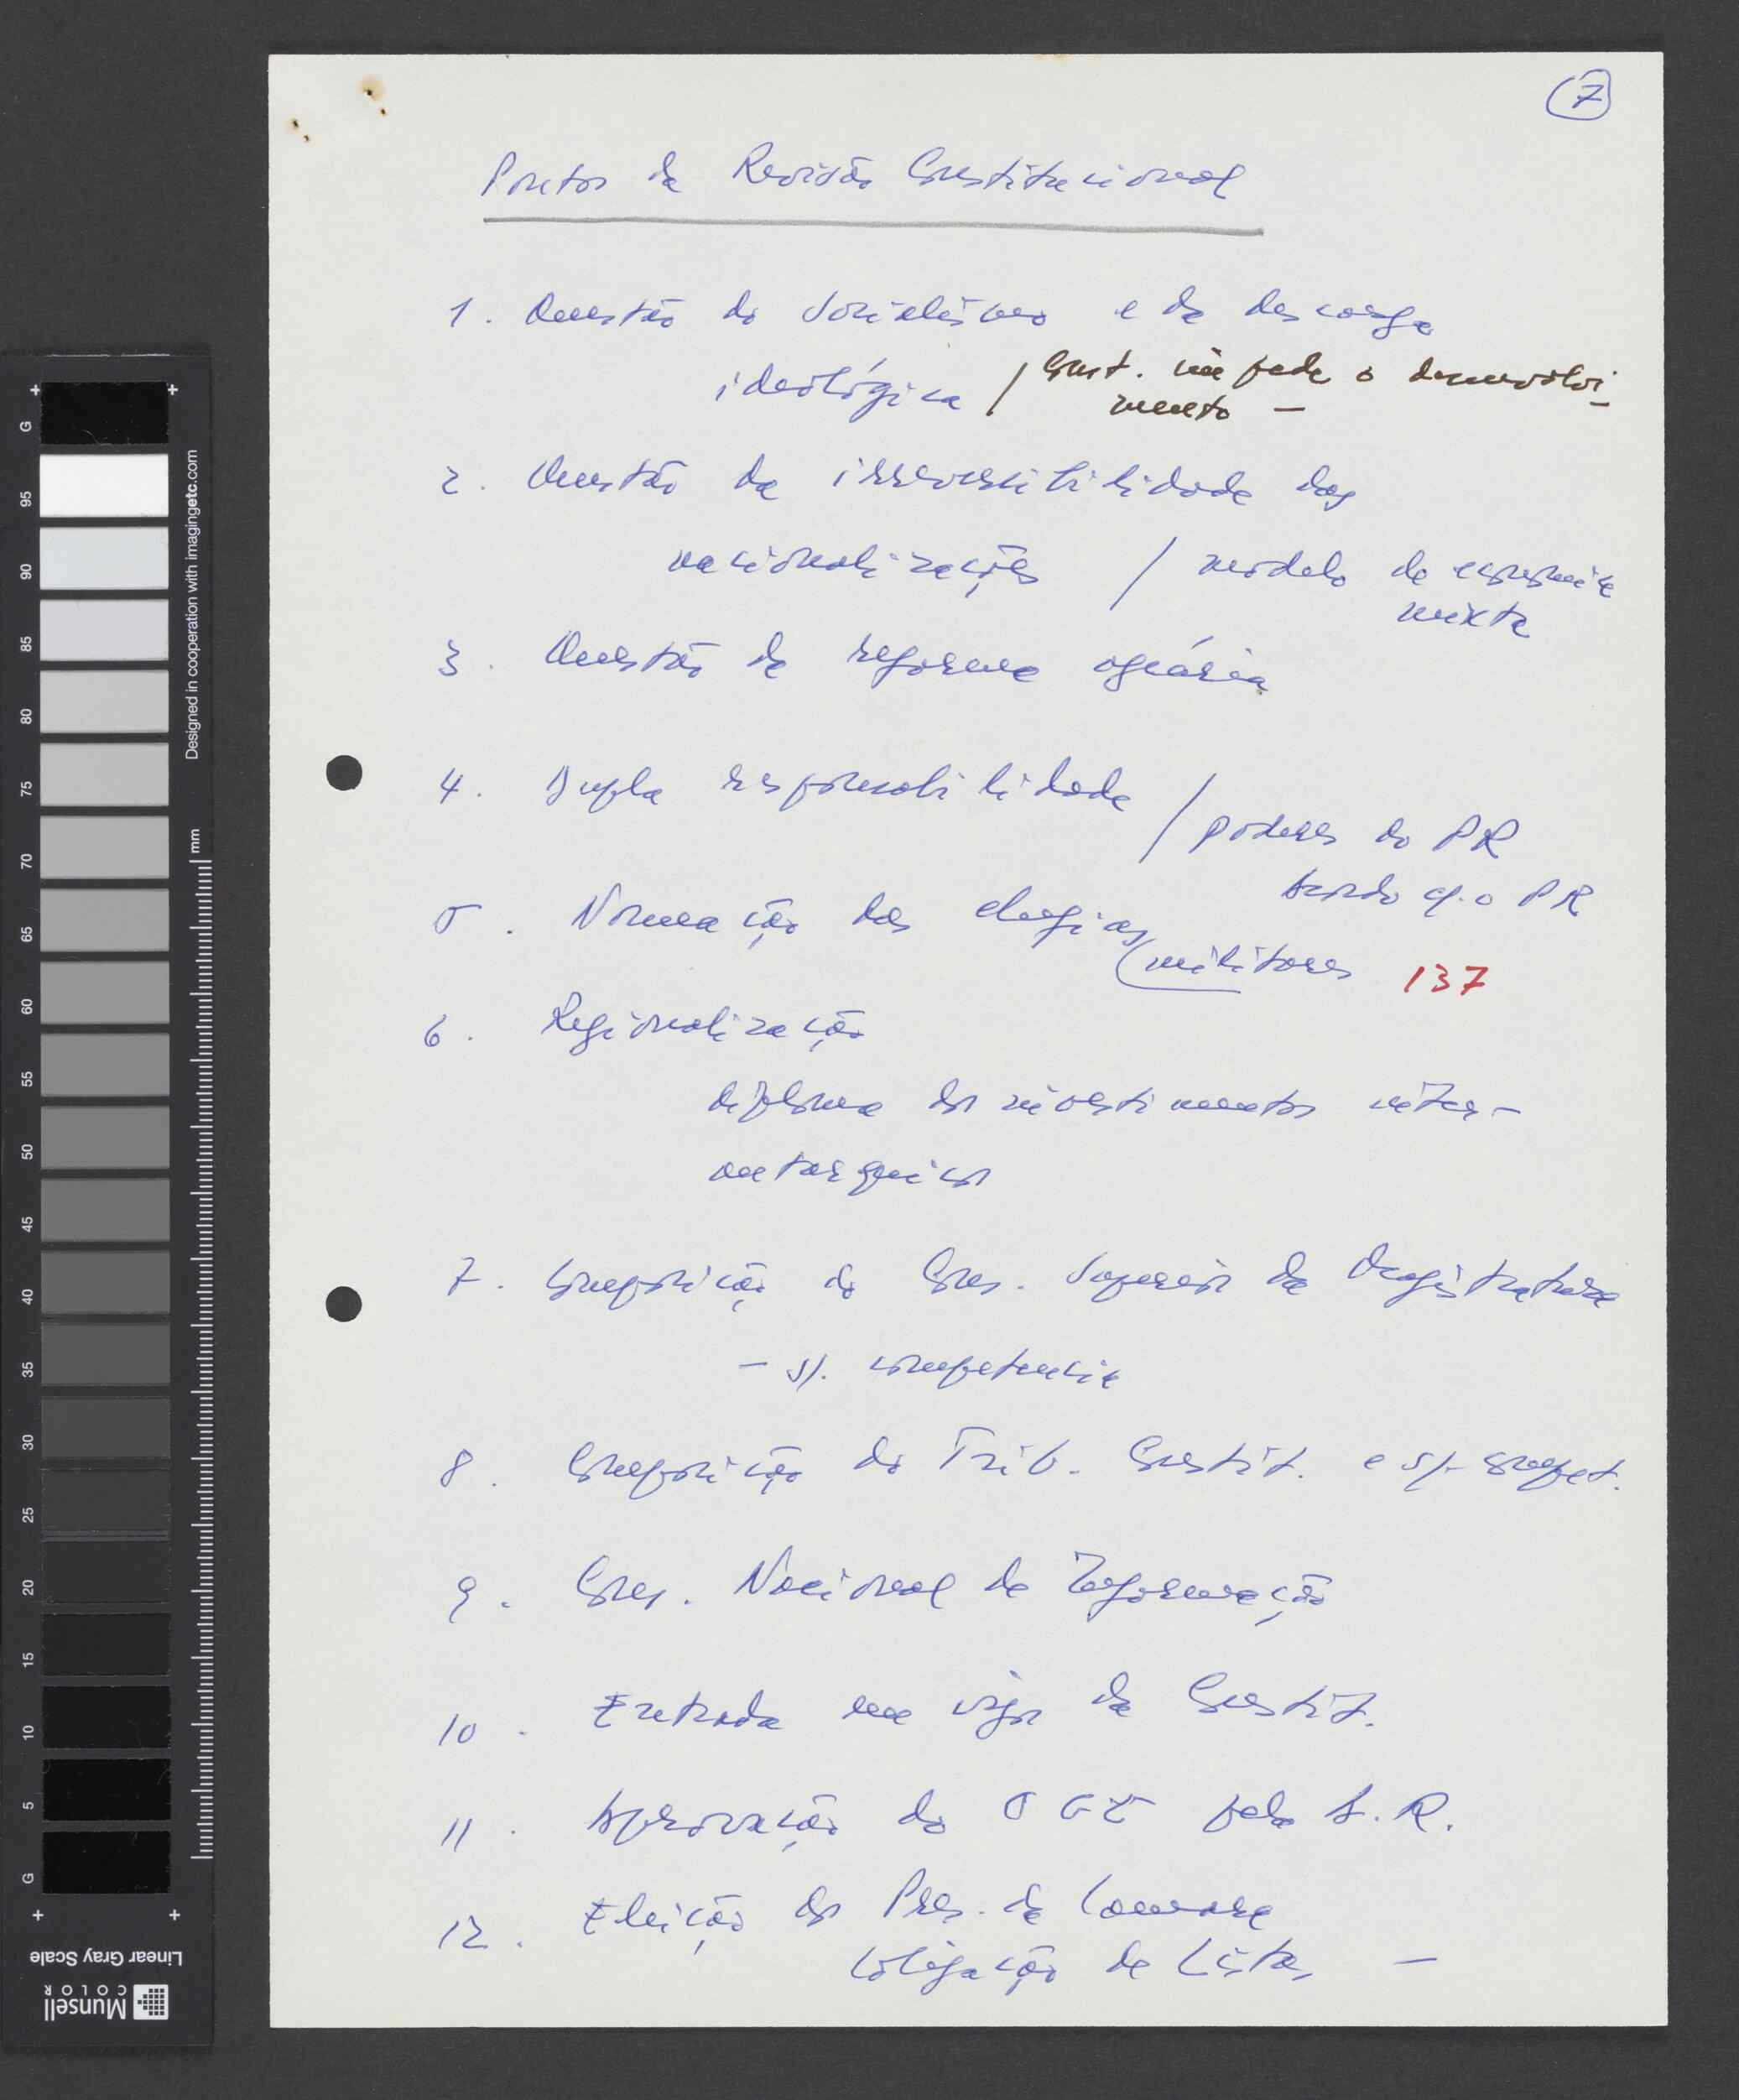 7
Pontos da Revisão Constitucional
1. Questão do Socialismo e da descarga
ideológica / Const. impede o desenvolvi-
mento –
2. Questão da irreversibilidade das
nacionalizações / modelo de economia
mixta
3. Questão da reforma agrária
4. Dupla responsabilidade / poderes do PR
Acordo c/. o PR
5. Nomeação das chefias
(militares 137
6. Regionalização
diploma dos investimentos inter-
autarquicos
7. Composição do Cons. Superior da Magistratura
– s/. competencia
8. Composição do Trib. Constit. e s/. compet.
9. Cons. Nacional de Informação
10. Entrada em vigor da Constit.
11. Aprovação do OGE pela A.R.
12. Eleição do Pres. da Camara
Coligação de Listas –
G 95 90 85 80 75 70 65 60 55 50 45 40 35 30 25 20 15 10 5 G
Designed in cooperation with imagingetc.com
mm
Linear Gray Scale
Munsell
COLOR